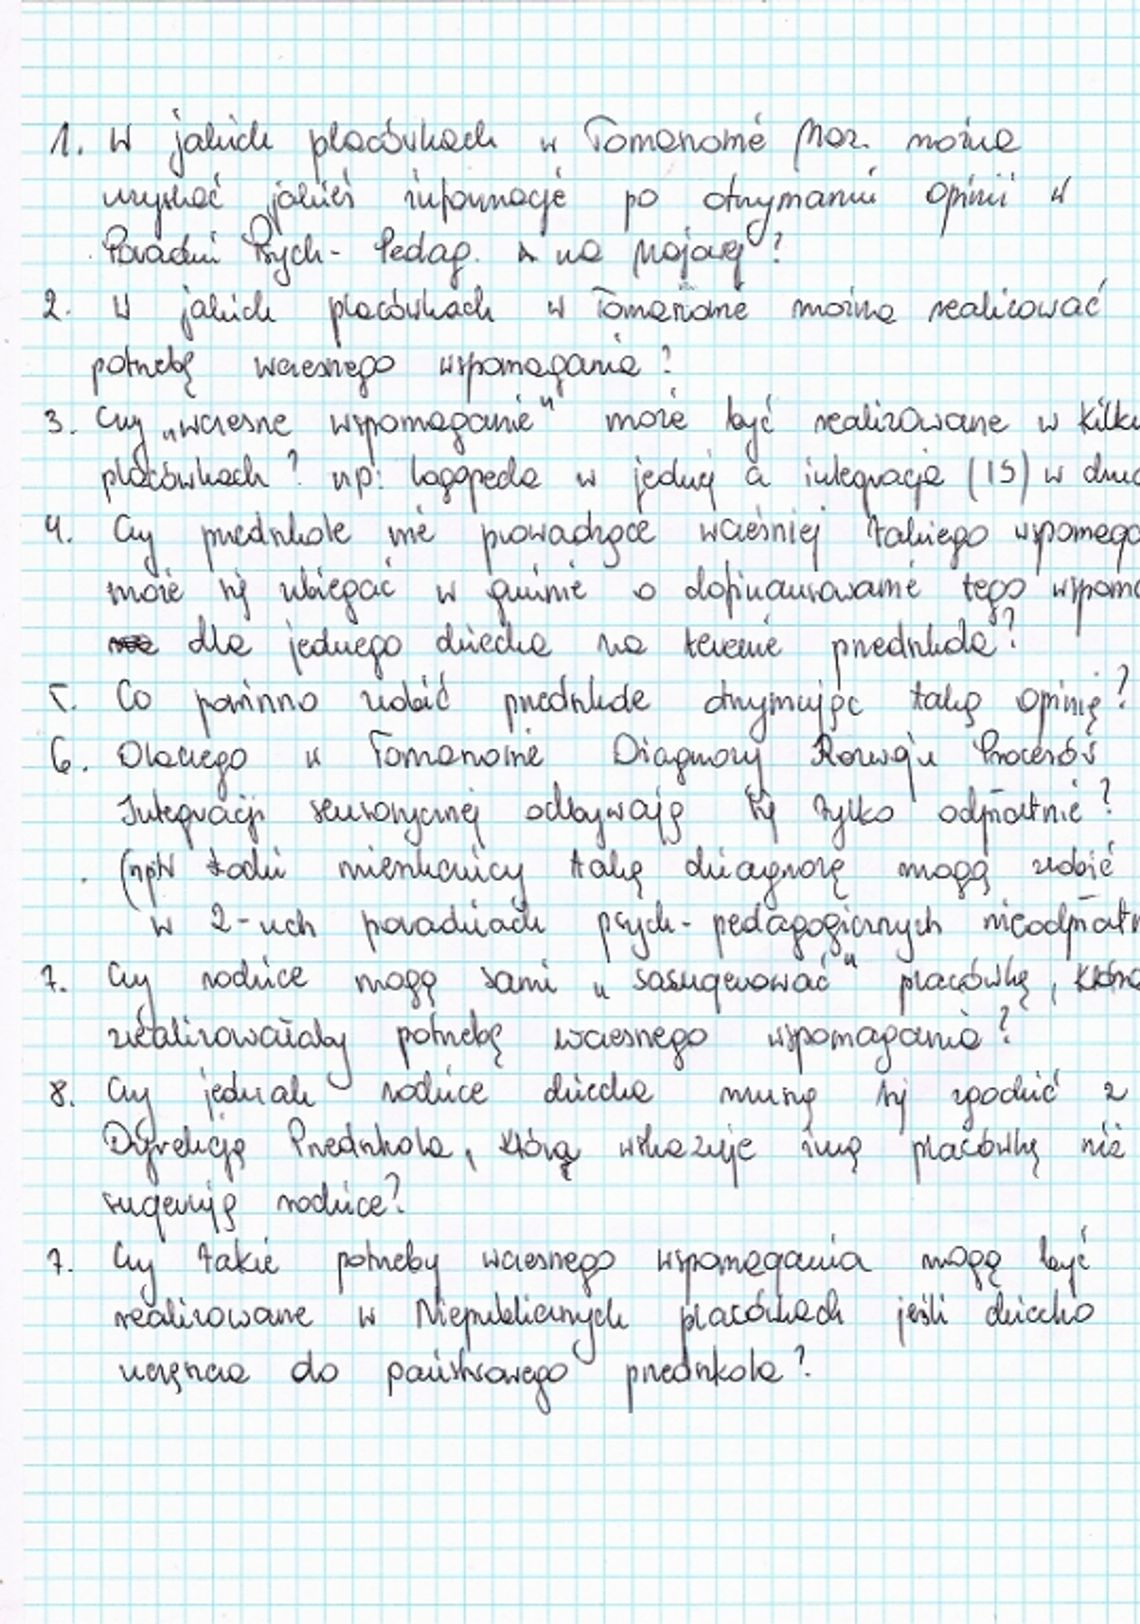 1. W jakich placówkach w Tomaszowie Maz. można
uzyskać jakieś informacje po otrzymaniu opinii w
Poradni Psych- Pedag. na Majowej?
2. W jakich placówkach w Tomaszowie można realizować
potrzebę wczesnego wspomagania?
3. Czy „wczesne wspomaganie" może być realizowane w kilku
placówkach? np: logopeda w jednej a integracja (IS) w
4. Czy przedszkole nie prowadzące wcześniej takiego
może się ubiegać w gminie o dofinansowanie tego
dla jednego dziecka na terenie przedszkola?
5. Co powinno zrobić przedszkole otrzymując taką opinię?
6. Dlaczego w Tomaszowie Diagnozy Rozwoju Procesów
Integracji sensorycznej odbywają się tylko odpłatnie?
(np w Łodzi mieszkańcy taką diagnozę mogą zrobić
w 2-uch poradniach psych- pedagogicznych
7. Czy rodzice mogą sami „zasugerować" placówkę, która
zrealizowałaby potrzebę wczesnego wspomagania?
8. Czy jednak rodzice dziecka muszą się zgodzić z
Dyrekcją Przedszkola, która wskazuje inną placówkę niż
sugerują rodzice?
7. Czy takie potrzeby wczesnego wspomagania mogą być
realizowane w Niepublicznych placówkach jeśli dziecko
uczęszcza do państwowego przedszkola?